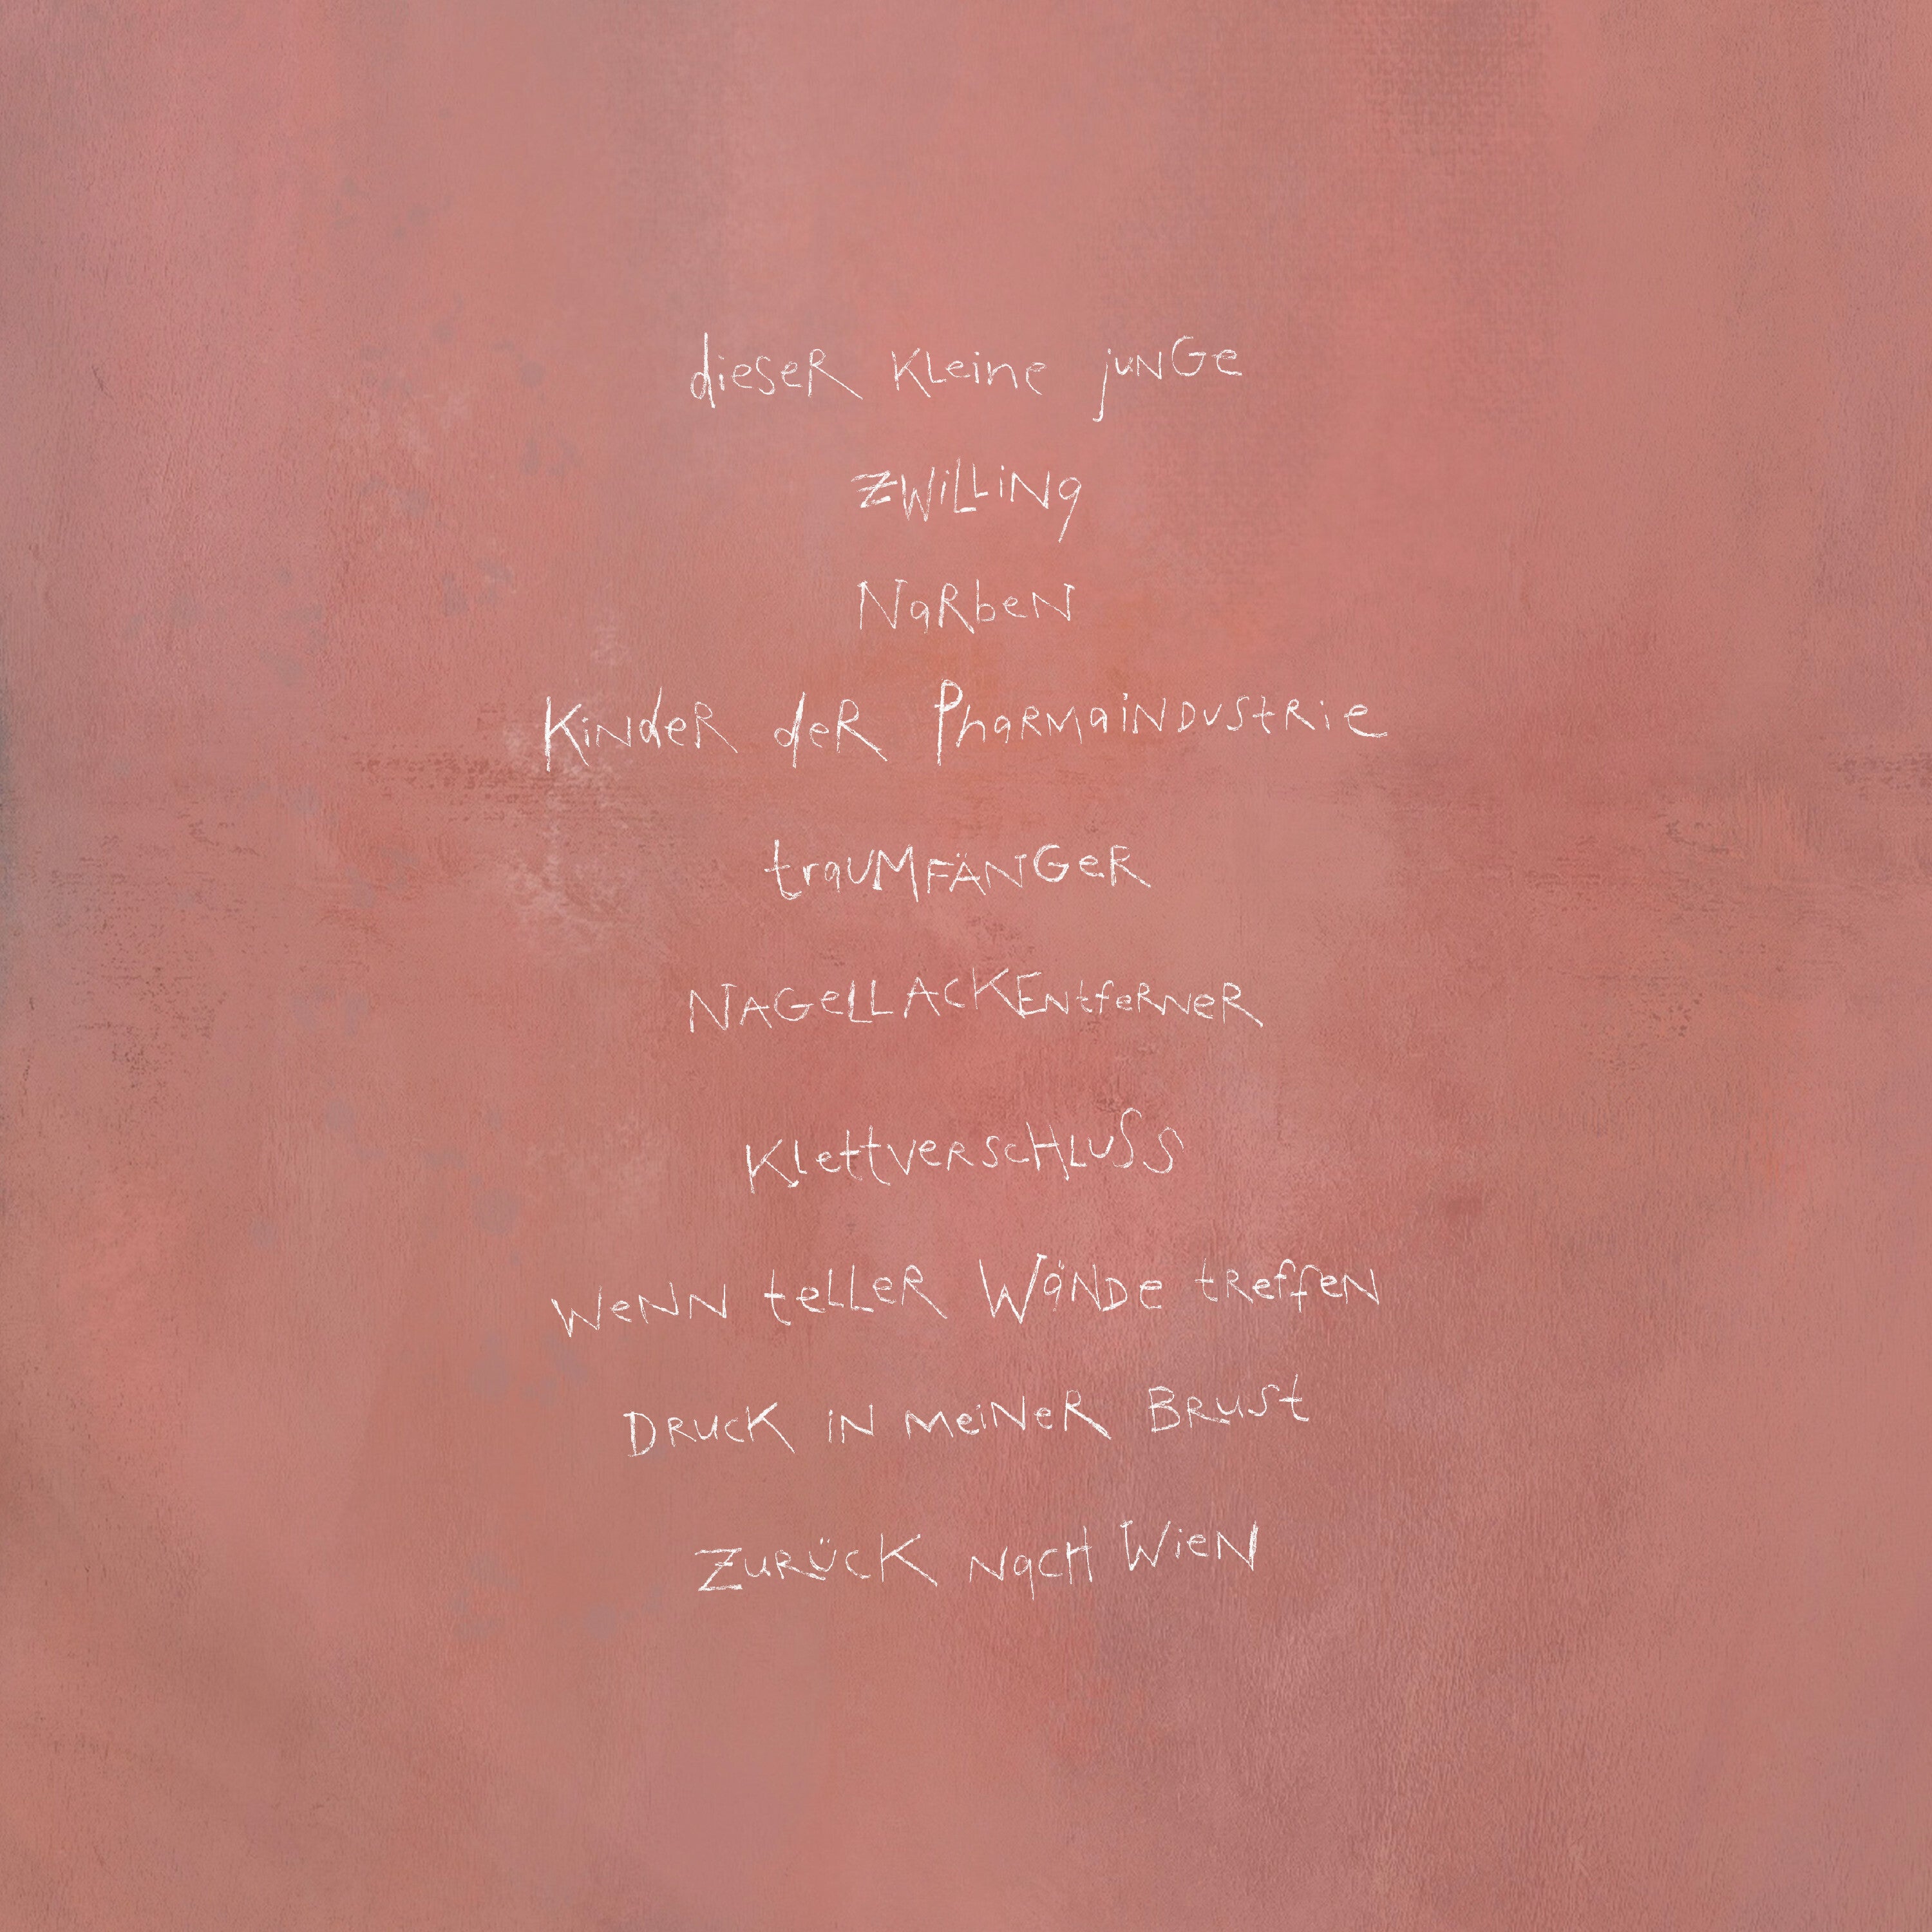 dieser kleine junge
Zwilling
Narben
Kinder der Pharmaindustrie
traumfänger
Nagellackentferner
Klettverschluss
wenn teller Wände treffen
Druck in meiner Brust
Zurück nach Wien